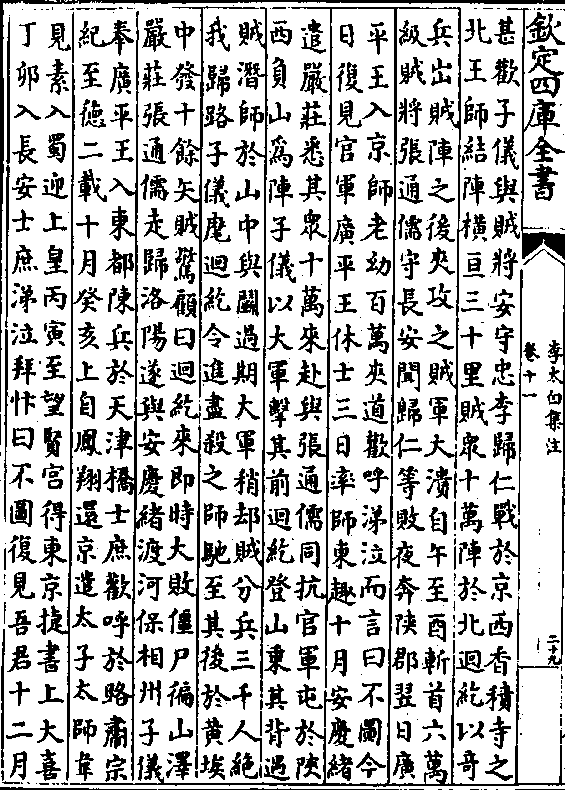 欽定四庫全書
李太白集注
卷十一
二十九
甚歡子儀與賊將安守忠李歸仁戰於京西香積寺之
北王師結陣橫亘三十里賊衆十萬陣於北迴紇以竒
兵出賊陣之後夾攻之賊軍大潰自午至酉斬首六萬
級賊將張通儒守長安聞歸仁等敗夜奔陜郡翌日廣
平王入京師老幼百萬夾道歡呼涕泣而言曰不圖今
日復見官軍廣平王休士三日率師東趣十月安慶緒
遣嚴莊悉其衆十萬來赴與張通儒同抗官軍屯於陜
西負山為陣子儀以大軍擊其前迴紇登山乗其背遇
賊潛師於山中與鬬過期大軍稍却賊分兵三千人絶
我歸路子儀麾迴紇令進盡殺之師馳至其後於黄埃
中發十餘矢賊驚顧曰迴紇來即時大敗僵尸徧山澤
嚴莊張通儒走歸洛陽遂與安慶緒渡河保相州子儀
奉廣平王入東都陳兵於天津橋士庶歡呼於路肅宗
紀至德二載十月癸亥上自鳳翔還京遣太子太師韋
見素入蜀迎上皇丙寅至望賢宫得東京捷書上大喜
丁卯入長安士庶涕泣拜忭曰不圖復見吾君十二月